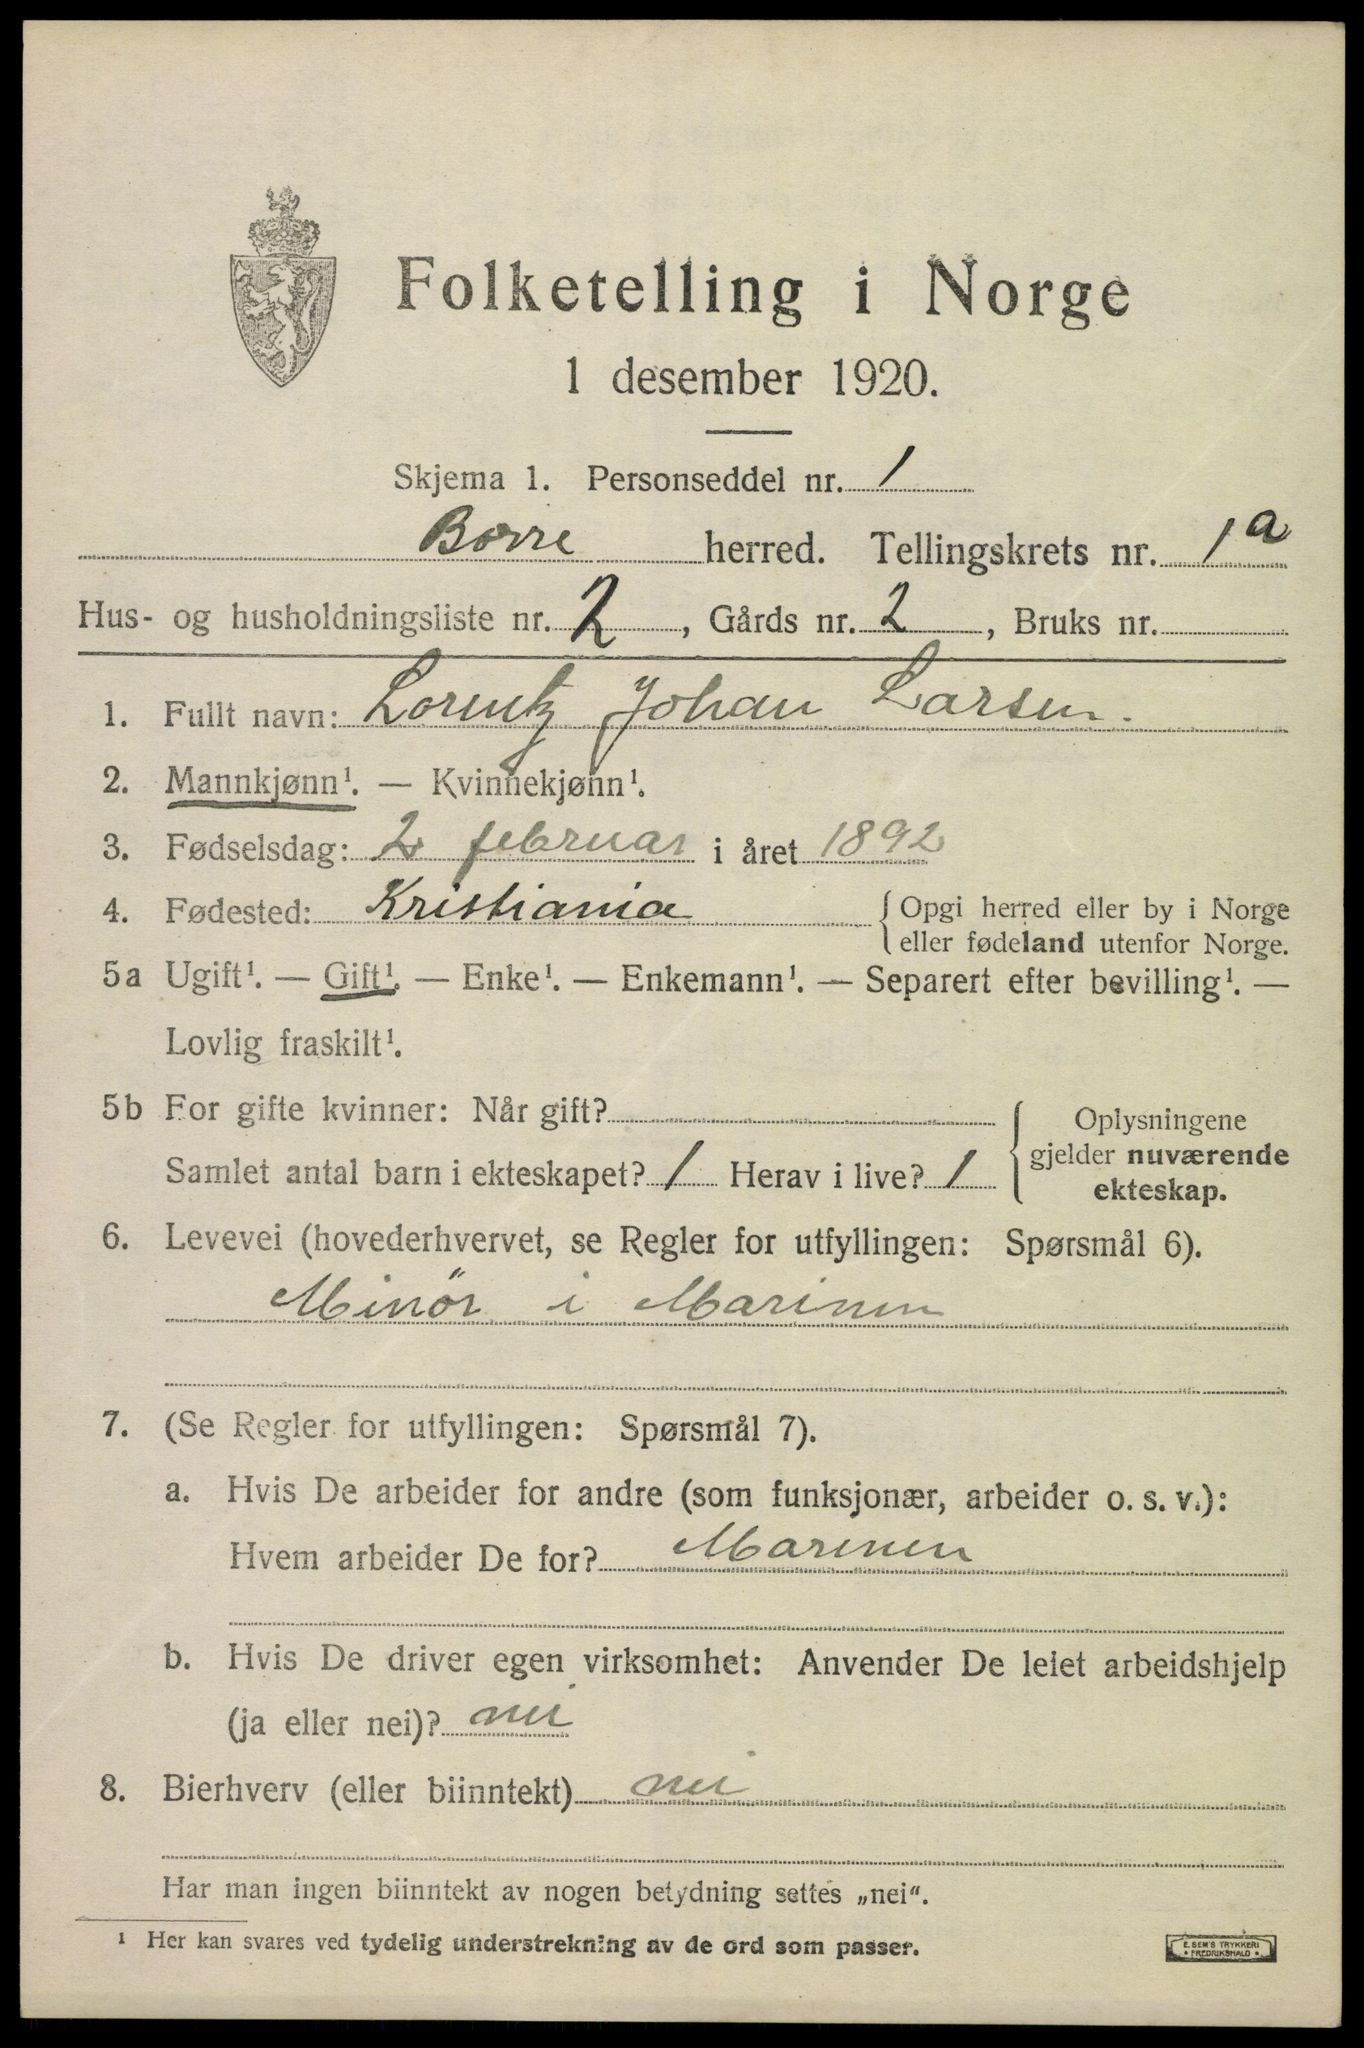 Folketelling i Norge
1 desember 1920.
Skjema 1. Personseddel nr. 1
Borre herred. Tellingskrets nr. 1a
Hus- og husholdningsliste nr. 2, Gårds nr. 2, Bruks nr.
1. Fullt navn: Lorentz Johan Larsen.
2. Mannkjønn¹. — Kvinnekjønn¹.
3. Fødselsdag: 2 februar i året 1892
4. Fødested: Kristiania { Opgi herred eller by i Norge
eller fødeland utenfor Norge.
5a Ugift¹. — Gift¹. — Enke¹. — Enkemann¹. — Separert efter bevilling¹. —
Lovlig fraskilt¹.
5b For gifte kvinner: Når gift?
Samlet antal barn i ekteskapet? 1 Herav i live? 1
{ Oplysningene
gjelder nuværende
ekteskap.
6. Levevei (hovederhvervet, se Regler for utfyllingen: Spørsmål 6).
Minör i Marinen
7. (Se Regler for utfyllingen: Spørsmål 7).
a. Hvis De arbeider for andre (som funksjonær, arbeider o. s. v.):
Hvem arbeider De for? Marinen
b. Hvis De driver egen virksomhet: Anvender De leiet arbeidshjelp
(ja eller nei)? nei
8. Bierhverv (eller biinntekt) nei
Har man ingen biinntekt av nogen betydning settes „nei“.
¹ Her kan svares ved tydelig understrekning av de ord som passer.
E. SEM'S TRYKKERI
• FREDRIKSHALD •